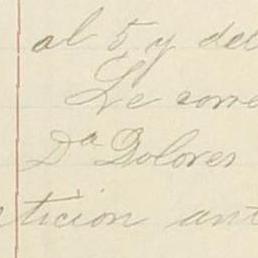 al 5 y del
Se corre
Dª Dolores
tición ant